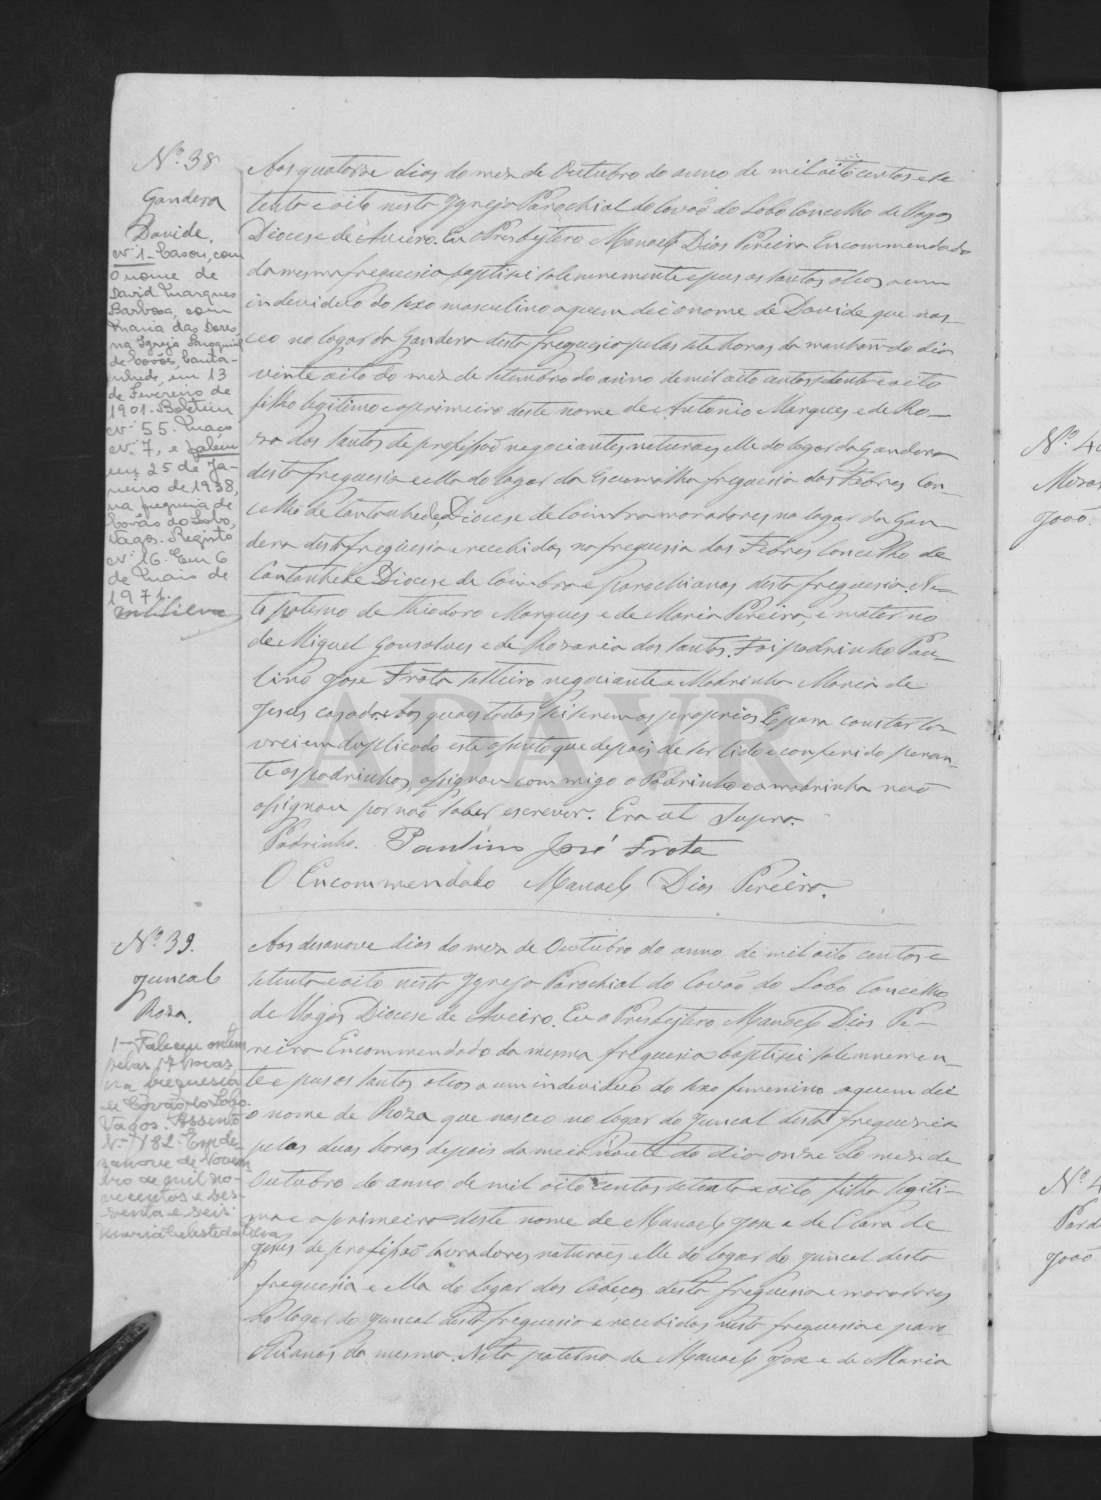 Nº 38
Gandera
Davide.
Nº 1 - Casou, com
o nome de
David Marques
Barbosa, com
Maria das Dores,
na Igreja Paroquial
de Covões, Canta-
nhede, em 13
de Fevereiro de
1901. Boletim
Nº 55. Maço
Nº 7, e faleceu
em 25 de Ja-
neiro de 1938,
na freguesia de
Covão do Lobo,
Vagos. Registo
Nº 16. Em 6
de Maio de
1971.
Aos quatorze dias do mez de Outubro do anno de mil oito centos e se
tenta e oito nesta Igreja Parochial do Covaõ do Lobo Concelho de Vagos
Diocese de Aveiro. Eu o Presbytero Manoel Dias Pereira Encommendado
da mesma freguesia baptisei solemnemente e pus os santos olios a um
individuo do sexo masculino a quem dei o nome de Davide que nas-
ceo no logar da Gandera desta freguesia pelas sete horas da manhan do dia
vinte oito do mez de Setembro do anno de mil oito centos setenta e oito
filho legitimo e o primeiro deste nome de Antonio Marques e de Ro-
za dos Santos de profissaõ negociantes, naturaes elle do logar da Gandera
desta freguesia e ella do logar da Escumalha freguesia das Febres Con-
celho de Cantanhede, Diocese de Coimbra moradores no logar da Gan-
dera desta freguesia e recebidos na freguesia das Febres Concelho de
Cantanhede Diocese de Coimbra e parochianos desta freguesia. Ne-
to paterno de Theodoro Marques e de Maria Pereira, e materno
de Miguel Gonsalves e de Rozaria dos Santos. Foi padrinho Pau-
lino Jose Frota solteiro negociante e Madrinha Maria de
Jesus casada os quaes todos sei serem os proprios. E para constar la-
vrei em duplicado este assento que depois de ser lido e conferido peran-
te os padrinhos, assignou commigo o Padrinho e a madrinha naõ
assignou por naõ saber escrever. Era ut supra.
Padrinho. Paulino José Frota
O Encommendado Manoel Dias Pereira.
Nº 39.
Juncal
Roza.
1 - Faleceu ontem
pelas 17 horas
na freguesia
de Covão do Lobo
Vagos. Assento
Nº 182. Em de-
zanove de Novem
bro de mil no-
vecentos e ses-
senta e seis.
Maria Celeste da Silva
Aos desanove dias do mez de Outubro do anno de mil oito centos e
setenta e oito nesta Igreja Parochial do Covaõ do Lobo Concelho
de Vagos Diocese de Aveiro. Eu o Presbytero Manoel Dias Pe-
reira Encommendado da mesma freguesia baptisei solemnemen-
te e pus os santos olios a um individuo do sexo femenino a quem dei
o nome de Roza que nasceo no logar do Juncal desta freguezia
pelas duas horas depois da meia noute do dia onze do mez de
Outubro do anno de mil oito centos setenta e oito, filha legiti-
ma e a primeira deste nome de Manoel Jose e de Clara de
Jesus de profissaõ lavradores naturaes elle do logar do Juncal desta
freguesia e ella do logar dos Cabeços desta freguesia e moradores
no logar do Juncal desta freguesia e recebidos nesta freguesia e paro
chianos da mesma. Neta paterna de Manoel Jose e de Maria
Nº 40
João.
Nº 4
João
ADAVR